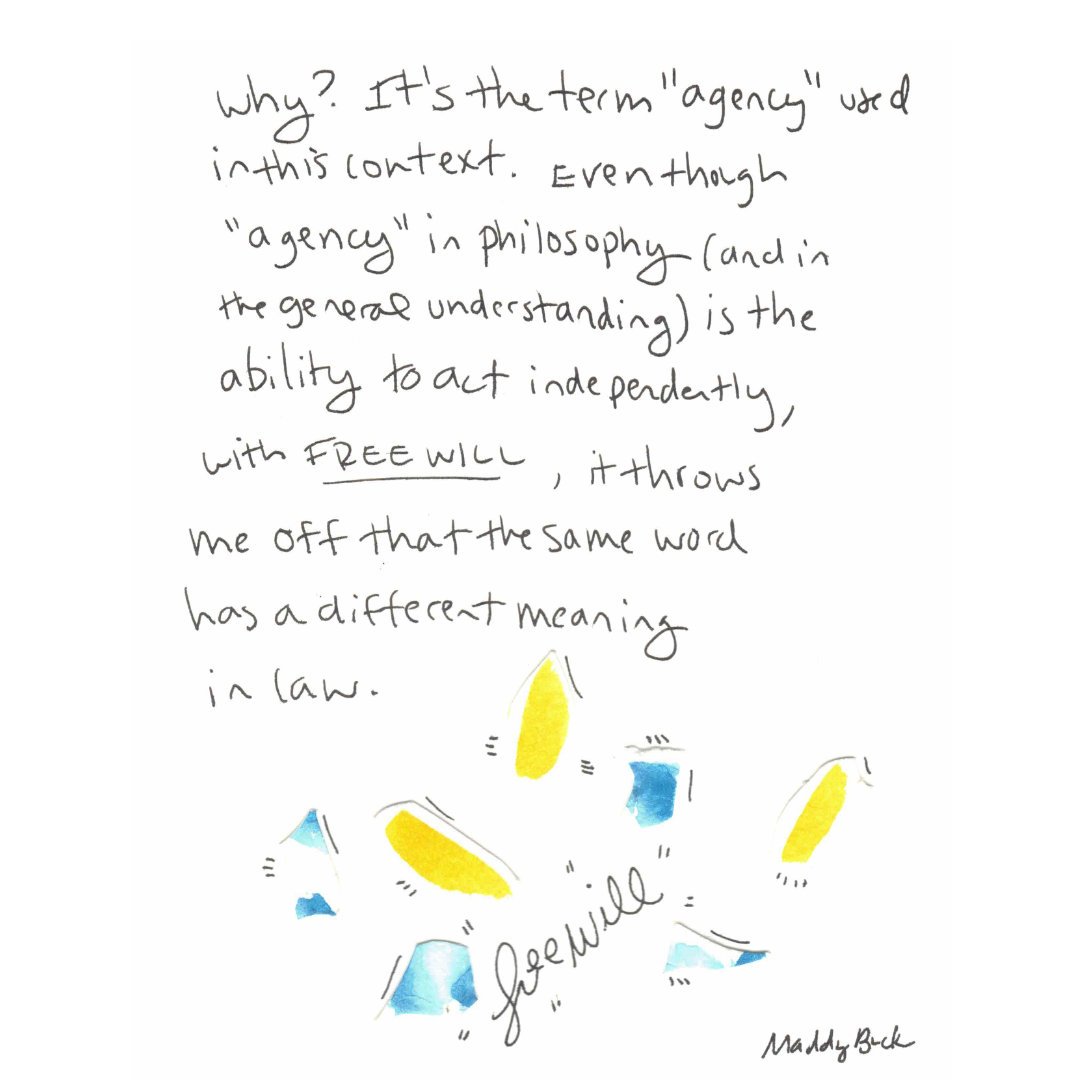 Why? It's the term "agency" used
in this context. Even though
"agency" in philosophy (and in
the general understanding) is the
ability to act independently,
with FREE WILL, it throws
me off that the same word
has a different meaning
in law.
"free will"
Maddy Buck